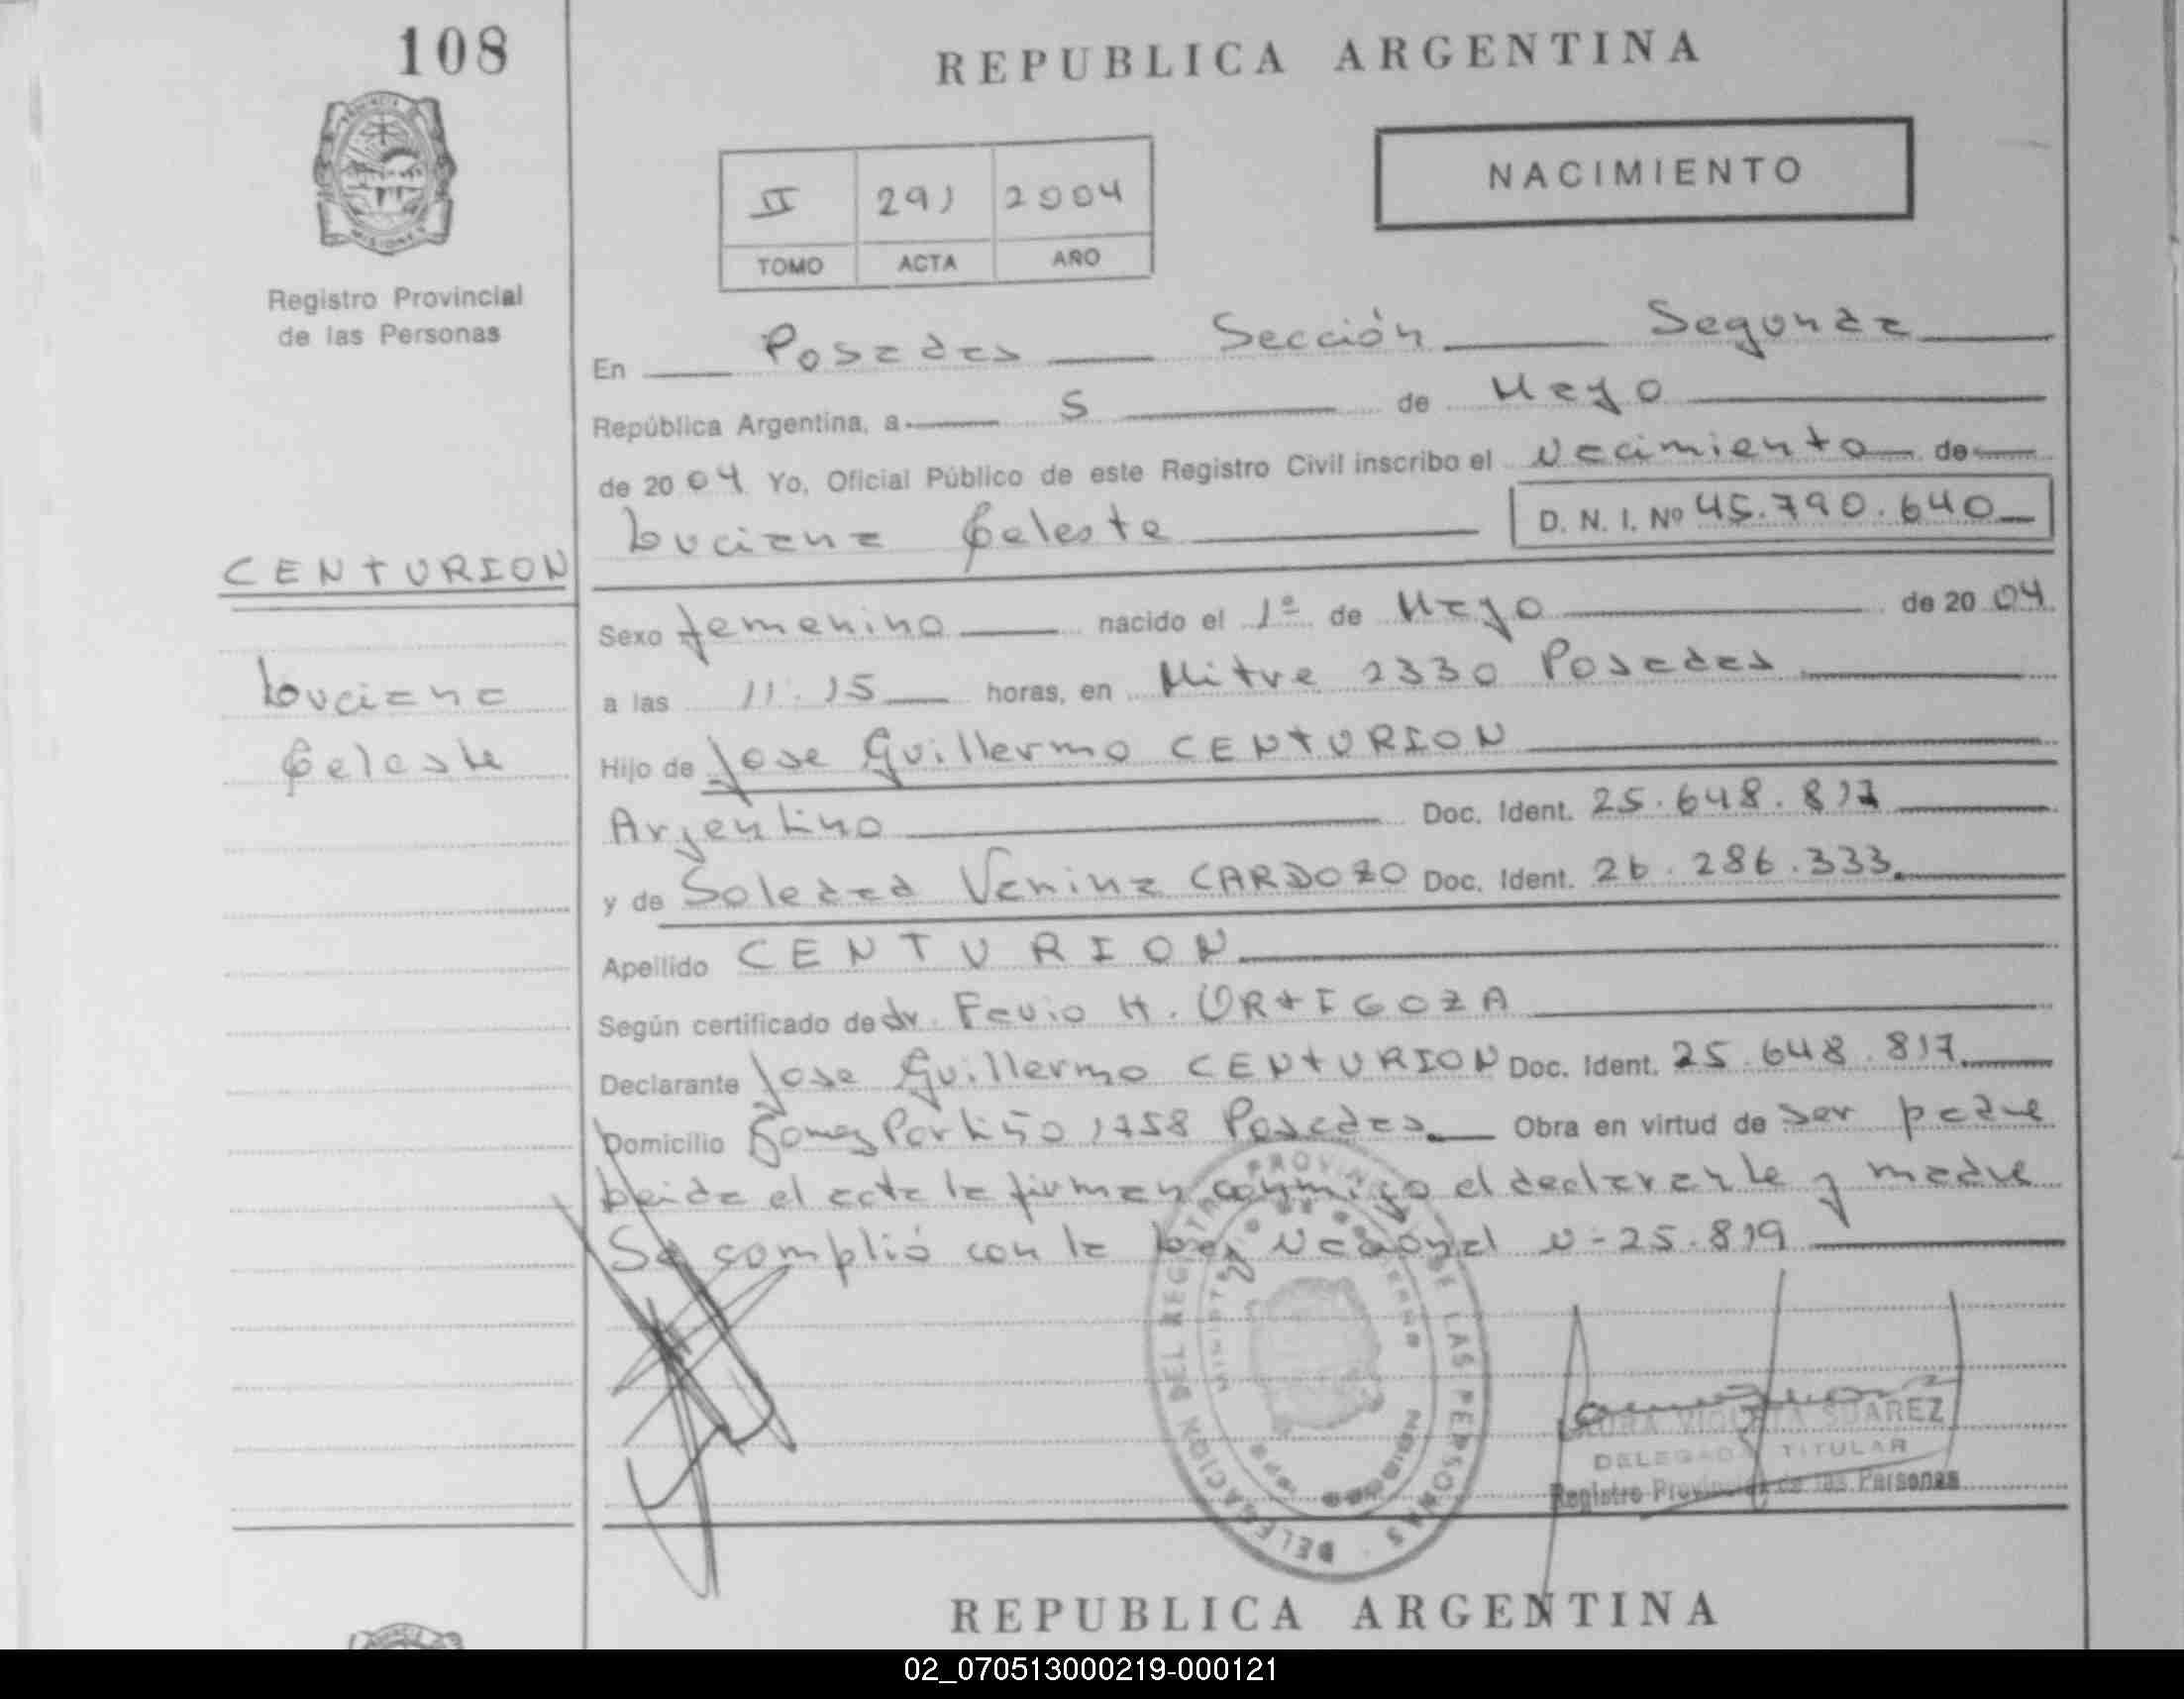 108
REPUBLICA ARGENTINA
NACIMIENTO
II 291 2004
TOMO ACTA AÑO
Registro Provincial
de las Personas
En Posadas Sección Segunda
República Argentina, a 5 de Mayo
de 2004 Yo, Oficial Público de este Registro Civil inscribo el Nacimiento de
Luciana Celeste D. N. I. Nº 45.790.640
CENTURION
Luciana
Celeste
Sexo femenino nacido el 1º de Mayo de 2004
a las 11.15 horas, en Mitre 2330 Posadas
Hijo de Jose Guillermo CENTURION
Argentino Doc. Ident. 25.648.817
y de Soledad Vanina CARDOZO Doc. Ident. 26.286.333
Apellido CENTURION
Según certificado de dr. Favio H. ORTIGOZA
Declarante Jose Guillermo CENTURION Doc. Ident. 25.648.817
Domicilio Gomez Portiño 1758 Posadas Obra en virtud de ser padre
Leida el acta la firman conmigo el declarante y madre
Se complió con la Ley Nacional N-25.819
DELEGACION DEL REGISTRO PROVINCIAL DE LAS PERSONAS
MISIONES
LAURA VIOLETA SUAREZ
DELEGADA TITULAR
Registro Provincial de las Personas
REPUBLICA ARGENTINA
02_070513000219-000121